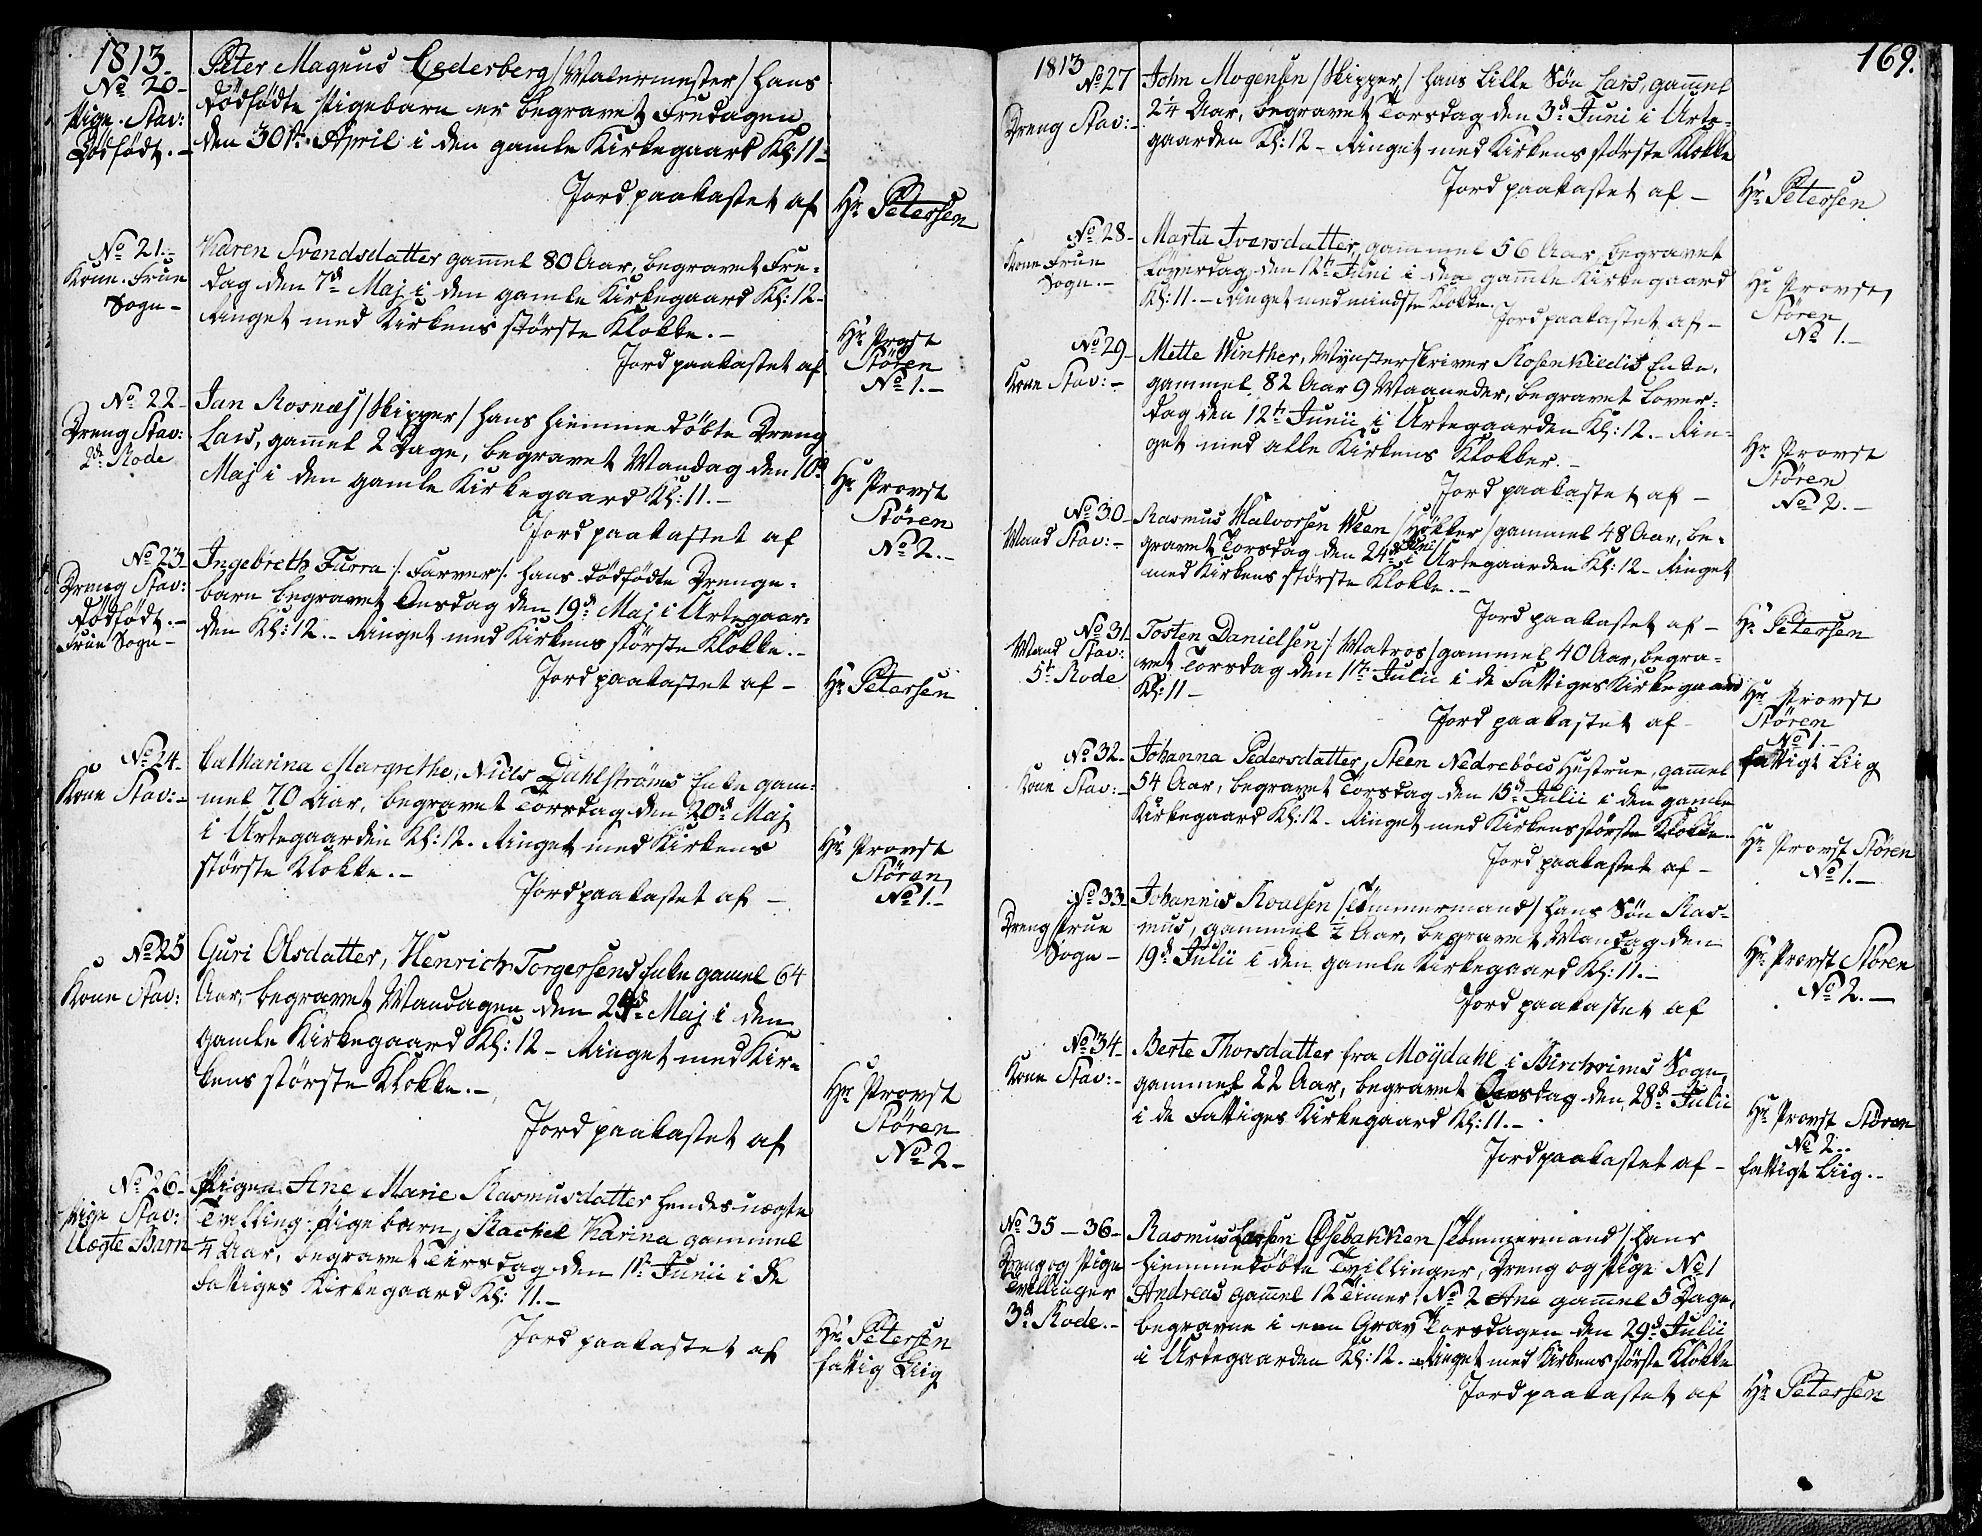 1813.
No 20 -
Pige. Stav:
Dödfödt. -
Peter Magnus Cederberg /: Malermester / hans
dödfödte Pigebarn er begravet Fredagen
den 30te April i den gamle Kirkegaard Kl: 11 -
Jord paakastet af
Hr Petersen
No 21. -
Kone. Frue
Sogn -
Karen Svendsdatter gam̄el 80 Aar, begravet Fre-
dag den 7d Maj i den gamle Kirkegaard Kl: 12 -
Ringet med Kirkens störste Klokke. -
Jord paakastet af
Hr Provst
Stören
No 1. -
No 22 -
Dreng Stav:
2d Rode
Jan Rosnæs / Skipper / hans hiemme döbte Dreng
Lars, gam̄el 2 Dage, begravet Mandag den 10d
Maj i den gamle Kirkegaard Kl: 11. -
Jord paakastet af
Hr Provst
Stören
No 2. -
No 23
Dreng Stav:
dödfödt. -
Frue Sogn -
Ingebreth Furra /: Farver /: hans dödfödte Drenge-
barn begravet Onsdag den 19d Maj i Urtegaar-
den Kl: 12. - Ringet med Kirkens störste Klokke. -
Jord paakastet af -
Hr Petersen
No 24 -
Kone Stav: -
Catharina Margrethe, Niels Dahlströms Enke gam-
mel 70 Aar, begravet Torsdag den 20d Maj
i Urtegaarden Kl: 12. Ringet med Kirkens
störste Klokke. -
Jord paakastet af -
Hr Provst
Stören
No 1. -
No 25
Kone Stav:
Guri Olsdatter, Henrich Torgersens Enke gamel 64
Aar, begravet Mandagen den 24d Maj i den
gamle Kirkegaard Kl: 12 - Ringet med Kir-
kens störste Klokke. -
Jord paakastet af
Hr Provst
Stören
No 2 -
No 26 -
Pige Stav:
Uægte Barn
Pigen Ane Marie Rasmusdatter hendes uægte
Tvilling Pigebarn, Rachel Karina gammel
1/4 Aar, begravet Tirsdag den 1te Junii i de
Fattiges Kirkegaard Kl: 11. -
Jord paakastet af
Hr Petersen
fattig Liig
169.
1813
No 27
Dreng Stav: -
John Mogensen / Skipper / hans lille Sön Lars, gam̄el
2 1/4 Aar, begravet Torsdag den 3d Juni i Urte-
gaarden Kl: 12 - Ringet med Kirkens störste Klokke
Jord paakastet af -
Hr Petersen
No 28 -
Kone Frue
Sogn. -
Marta Iversdatter, gammel 56 Aar, begravet
Löverdag den 12te Juni i den gamle Kirkegaard
Kl: 11. - Ringet med mindste Klokke.
Jord paakastet af -
Hr Provst
Stören
No 1. -
No 29 -
Kone Stav: -
Mette Winther, Mynsterskriver Rosenkildes Enke,
gammel 82 Aar 9 Maaneder, begravet Lover-
dag den 12te Junii i Urtegaarden Kl: 12. - Rin-
get med alle Kirkens Klokker. -
Jord paakastet af -
Hr Provst
Stören
No 2. -
No 30 -
Mand Stav: -
Rasmus Halvorsen Ween / Hökker / gammel 48 Aar, be-
gravet Torsdag den 24de Juni i Urtegaarden Kl: 12 - Ringet
med Kirkens störste Klokke. -
Jord paakastet af -
Hr Petersen
No 31
Mand Stav:
5te Rode
Tosten Danielsen / Matros / gammel 40 Aar, begra-
vet Torsdag den 1te Julii i de Fattiges Kirkegaard
Kl: 11 -
Jord paakastet af
Hr Provst
Stören
No 1. -
fattigt Liig
No 32.
Kone Stav: -
Johanna Pedersdatter, Steen Nedreböes Hustrue, gam̄el
54 Aar, begravet Torsdag den 15d Julii i den gamle
Kirkegaard Kl: 12 - Ringet med Kirkens störste Klokke -
Jord paakastet af -
Hr Provst Stören
No 1. -
No 33 -
Dreng Frue
Sogn -
Johannis Roalsen / Tömmermand / hans Sön Ras-
mus, gammel 1/2 Aar, begravet Mandag den
19d Julii i den gamle Kirkegaard Kl: 11. -
Jord paakastet af
Hr Provst Stören
No 2. -
No 34 -
Kone Stav: -
Berte Thorsdatter fra Moydahl i Birchrims Sogn,
gammel 22 Aar, begravet Onsdag den 28d Julii
i de Fattiges Kirkegaard Kl: 11. -
Jord paakastet af -
Hr Provst Stören
No 2. -
fattigt Liig. -
No 35 - 36 -
Dreng og Pige
Tvillinger
3d Rode. -
Rasmus Larsen Osebakken / Tömmermand / hans
hiemmedöbte Tvillinger, Dreng og Pige No 1
Andreas gam̄el 12 Timer, No 2 Ane gam̄el 5 Dage,
begravne i een Grav Torsdagen den 29d Julii
i Urtegaarden Kl: 12. - Ringet med Kirkens störste Klokke
Jord paakastet af
Hr Petersen